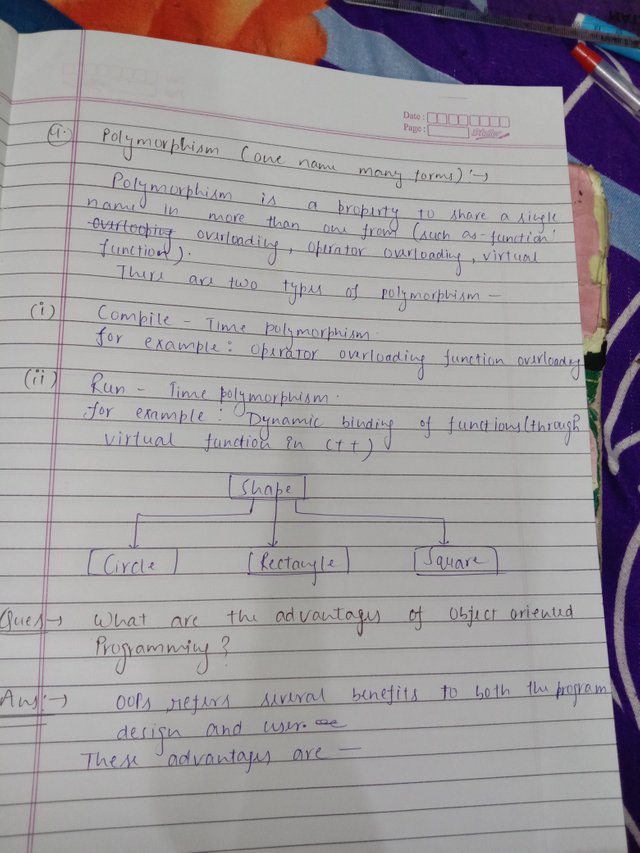 Date :
Page :
4. Polymorphism (one name many forms) :→
Polymorphism is a property to share a single
name in more than one from (such as function
overlooping overloading, operator overloading, virtual
function).
There are two types of polymorphism —
(i) Compile - Time polymorphism.
for example : operator overloading function overloading
(ii) Run - Time polymorphism.
for example : Dynamic binding of functions (through
virtual function in C++)
Shape
Circle Rectangle Square
Ques → What are the advantages of object oriented
Programming ?
Ans :→ OOPs refers several benefits to both the program
design and user.
These advantages are —